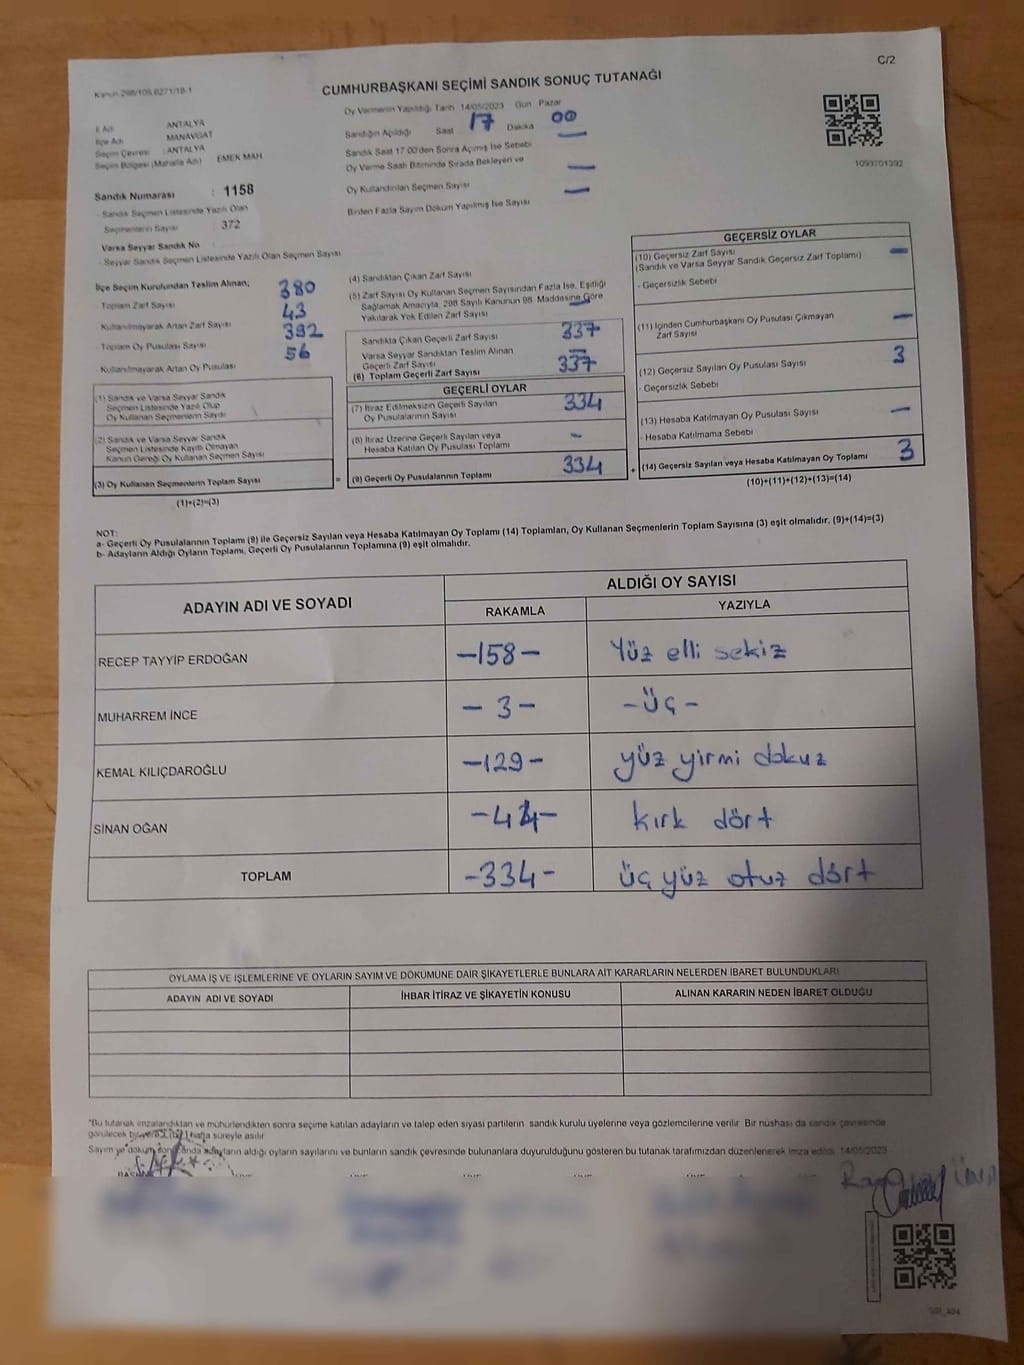 C/2
Kanun 298/105,6271/18-1
CUMHURBAŞKANI SEÇİMİ SANDIK SONUÇ TUTANAĞI
İl Adı ANTALYA
İlçe Adı MANAVGAT
Seçim Çevresi : ANTALYA
Seçim Bölgesi (Mahalle Adı) EMEK MAH
Oy Vermenin Yapıldığı Tarih 14/05/2023 Gün Pazar
Sandığın Açıldığı Saat 17 Dakika 00
Sandık Saat 17:00'den Sonra Açılmış İse Sebebi —
Oy Verme Saati Bitiminde Sırada Bekleyen ve
Oy Kullandırılan Seçmen Sayısı —
Birden Fazla Sayım Döküm Yapılmış İse Sayısı —
1093701392
Sandık Numarası : 1158
- Sandık Seçmen Listesinde Yazılı Olan
Seçmenlerin Sayısı : 372
Varsa Seyyar Sandık No :
- Seyyar Sandık Seçmen Listesinde Yazılı Olan Seçmen Sayısı
İlçe Seçim Kurulundan Teslim Alınan;
- Toplam Zarf Sayısı 380
- Kullanılmayarak Artan Zarf Sayısı 43
- Toplam Oy Pusulası Sayısı 392
- Kullanılmayarak Artan Oy Pusulası 56
(1) Sandık ve Varsa Seyyar Sandık
Seçmen Listesinde Yazılı Olup
Oy Kullanan Seçmenlerin Sayısı
(2) Sandık ve Varsa Seyyar Sandık
Seçmen Listesinde Kayıtlı Olmayan
Kanun Gereği Oy Kullanan Seçmen Sayısı
(3) Oy Kullanan Seçmenlerin Toplam Sayısı
(1)+(2)=(3)
=
(4) Sandıktan Çıkan Zarf Sayısı
(5) Zarf Sayısı Oy Kullanan Seçmen Sayısından Fazla İse, Eşitliği
Sağlamak Amacıyla, 298 Sayılı Kanunun 98. Maddesine Göre
Yakılarak Yok Edilen Zarf Sayısı —
Sandıkta Çıkan Geçerli Zarf Sayısı 337
Varsa Seyyar Sandıktan Teslim Alınan
Geçerli Zarf Sayısı —
(6) Toplam Geçerli Zarf Sayısı 337
GEÇERLİ OYLAR
(7) İtiraz Edilmeksizin Geçerli Sayılan
Oy Pusulalarının Sayısı 334
(8) İtiraz Üzerine Geçerli Sayılan veya
Hesaba Katılan Oy Pusulası Toplamı -
(9) Geçerli Oy Pusulalarının Toplamı 334
+
GEÇERSİZ OYLAR
(10) Geçersiz Zarf Sayısı —
(Sandık ve Varsa Seyyar Sandık Geçersiz Zarf Toplamı)
- Geçersizlik Sebebi
(11) İçinden Cumhurbaşkanı Oy Pusulası Çıkmayan
Zarf Sayısı —
(12) Geçersiz Sayılan Oy Pusulası Sayısı 3
- Geçersizlik Sebebi
(13) Hesaba Katılmayan Oy Pusulası Sayısı —
- Hesaba Katılmama Sebebi
(14) Geçersiz Sayılan veya Hesaba Katılmayan Oy Toplamı 3
(10)+(11)+(12)+(13)=(14)
NOT:
a- Geçerli Oy Pusulalarının Toplamı (9) ile Geçersiz Sayılan veya Hesaba Katılmayan Oy Toplamı (14) Toplamları, Oy Kullanan Seçmenlerin Toplam Sayısına (3) eşit olmalıdır. (9)+(14)=(3)
b- Adayların Aldığı Oyların Toplamı, Geçerli Oy Pusulalarının Toplamına (9) eşit olmalıdır.
ADAYIN ADI VE SOYADI
ALDIĞI OY SAYISI
RAKAMLA YAZIYLA
RECEP TAYYİP ERDOĞAN -158- Yüz elli sekiz
MUHARREM İNCE -3- -üç-
KEMAL KILIÇDAROĞLU -129- yüz yirmi dokuz
SİNAN OĞAN -44- kırk dört
TOPLAM -334- üç yüz otuz dört
OYLAMA İŞ VE İŞLEMLERİNE VE OYLARIN SAYIM VE DÖKÜMÜNE DAİR ŞİKAYETLERLE BUNLARA AİT KARARLARIN NELERDEN İBARET BULUNDUKLARI
ADAYIN ADI VE SOYADI İHBAR İTİRAZ VE ŞİKAYETİN KONUSU ALINAN KARARIN NEDEN İBARET OLDUĞU
*Bu tutanak imzalandıktan ve mühürlendikten sonra seçime katılan adayların ve talep eden siyasi partilerin sandık kurulu üyelerine veya gözlemcilerine verilir. Bir nüshası da sandık çevresinde
görülecek bir yere 1 (bir) hafta süreyle asılır.
Sayım ve döküm sonunda adayların aldığı oyların sayılarını ve bunların sandık çevresinde bulunanlara duyurulduğunu gösteren bu tutanak tarafımızdan düzenlenerek imza edildi. 14/05/2023